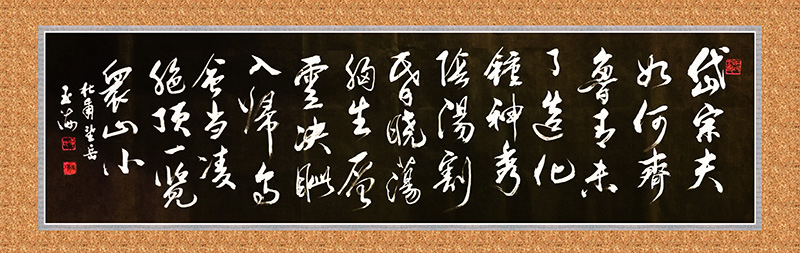 岱宗夫
如何齊
魯青未
了造化
鍾神秀
陰陽割
昏曉蕩
胸生层
雲决眦
入歸鸟
會当凌
絕頂一覽
衆山小
杜甫望岳